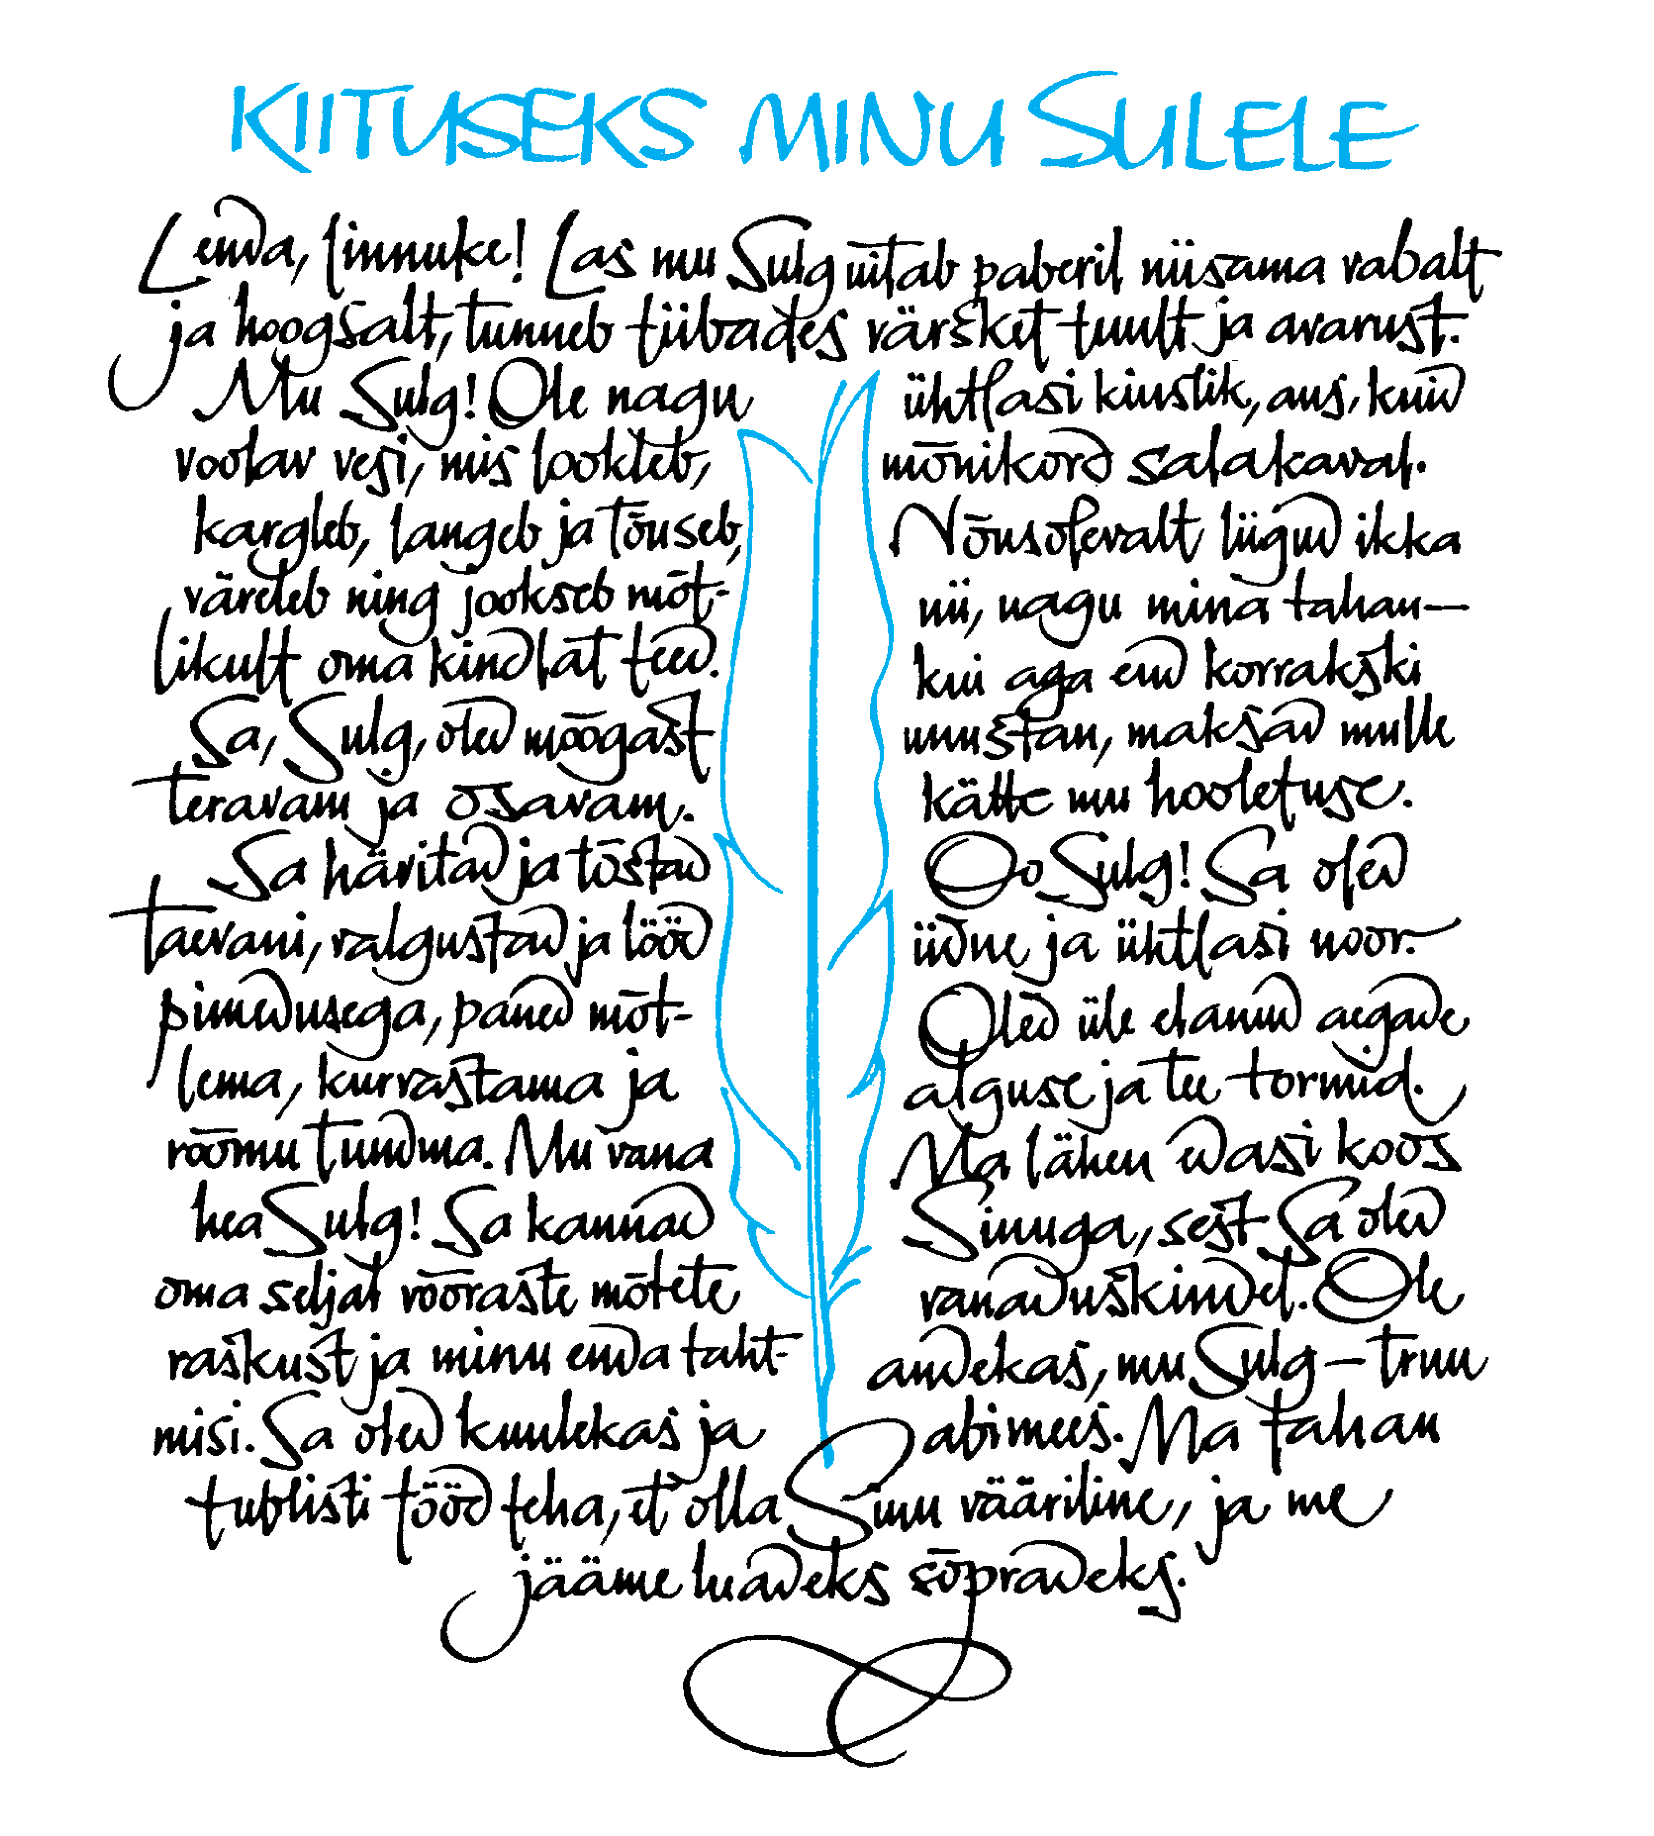 KIITUSEKS MINU SULELE
Lenda, linnuke! Las mu Sulg uitab paberil niisama vabalt
ja hoogsalt, tunneb tiibades värsket tuult ja avarust.
Mu Sulg! Ole nagu
voolav vesi, mis lookleb,
kargleb, langeb ja tõuseb,
väreleb ning jookseb mõt-
likult oma kindlat teed.
Sa, Sulg, oled mõõgast
teravam ja osavam.
Sa häritad ja tõstad
taevani, valgustad ja lööd
pimedusega, paned mõt-
lema, kurvastama ja
rõõmu tundma. Mu vana
hea Sulg! Sa kannad
oma seljal võõraste mõtete
raskust ja minu enda taht-
misi. Sa oled kuulekas ja
ühtlasi kiuslik, aus, kuid
mõnikord salakaval.
Nõusolevalt liigud ikka
nii, nagu mina tahan—
kui aga end korrakski
unustan, maksad mulle
kätte mu hooletuse.
Oo Sulg! Sa oled
üdne ja ühtlasi noor.
Oled üle elanud aegade
alguse ja tee tormid.
Ma lähen edasi koos
Sinuga, sest Sa oled
vanaduskindel. Ole
andekas, mu Sulg – truu
abimees. Ma tahan
tublisti tööd teha, et olla Sinu vääriline, ja me
jääme headeks sõpradeks.